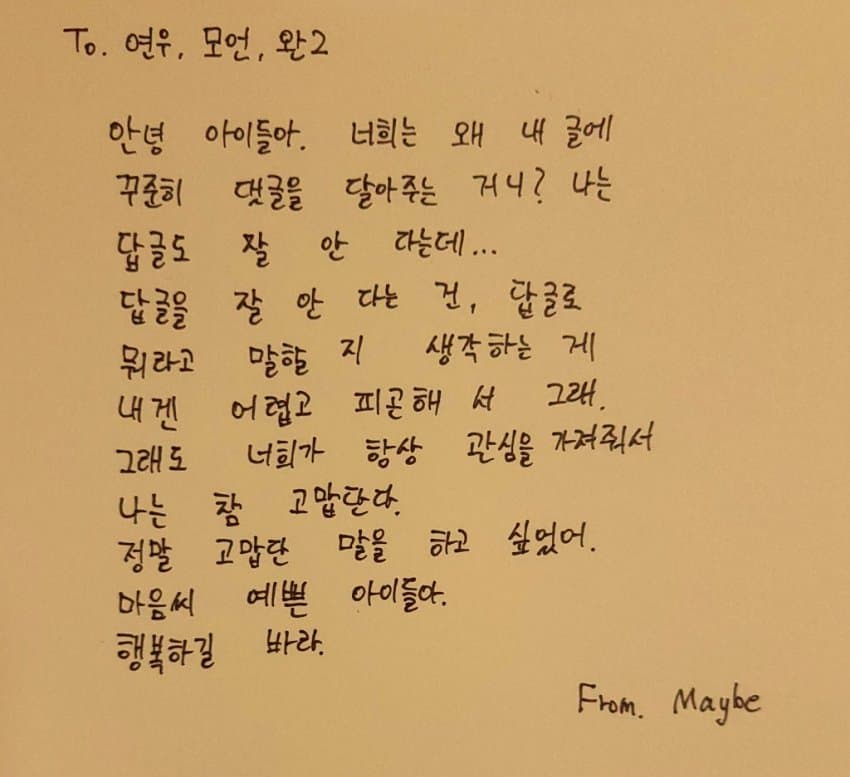 To. 연우, 모언, 완2
안녕 아이들아. 너희는 왜 내 글에
꾸준히 댓글을 달아주는 거니? 나는
답글도 잘 안 다는데...
답글을 잘 안 다는 건, 답글로
뭐라고 말할 지 생각하는 게
내겐 어렵고 피곤해 서 그래.
그래도 너희가 항상 관심을 가져줘서
나는 참 고맙단다.
정말 고맙단 말을 하고 싶었어.
마음씨 예쁜 아이들아.
행복하길 바라.
From. Maybe